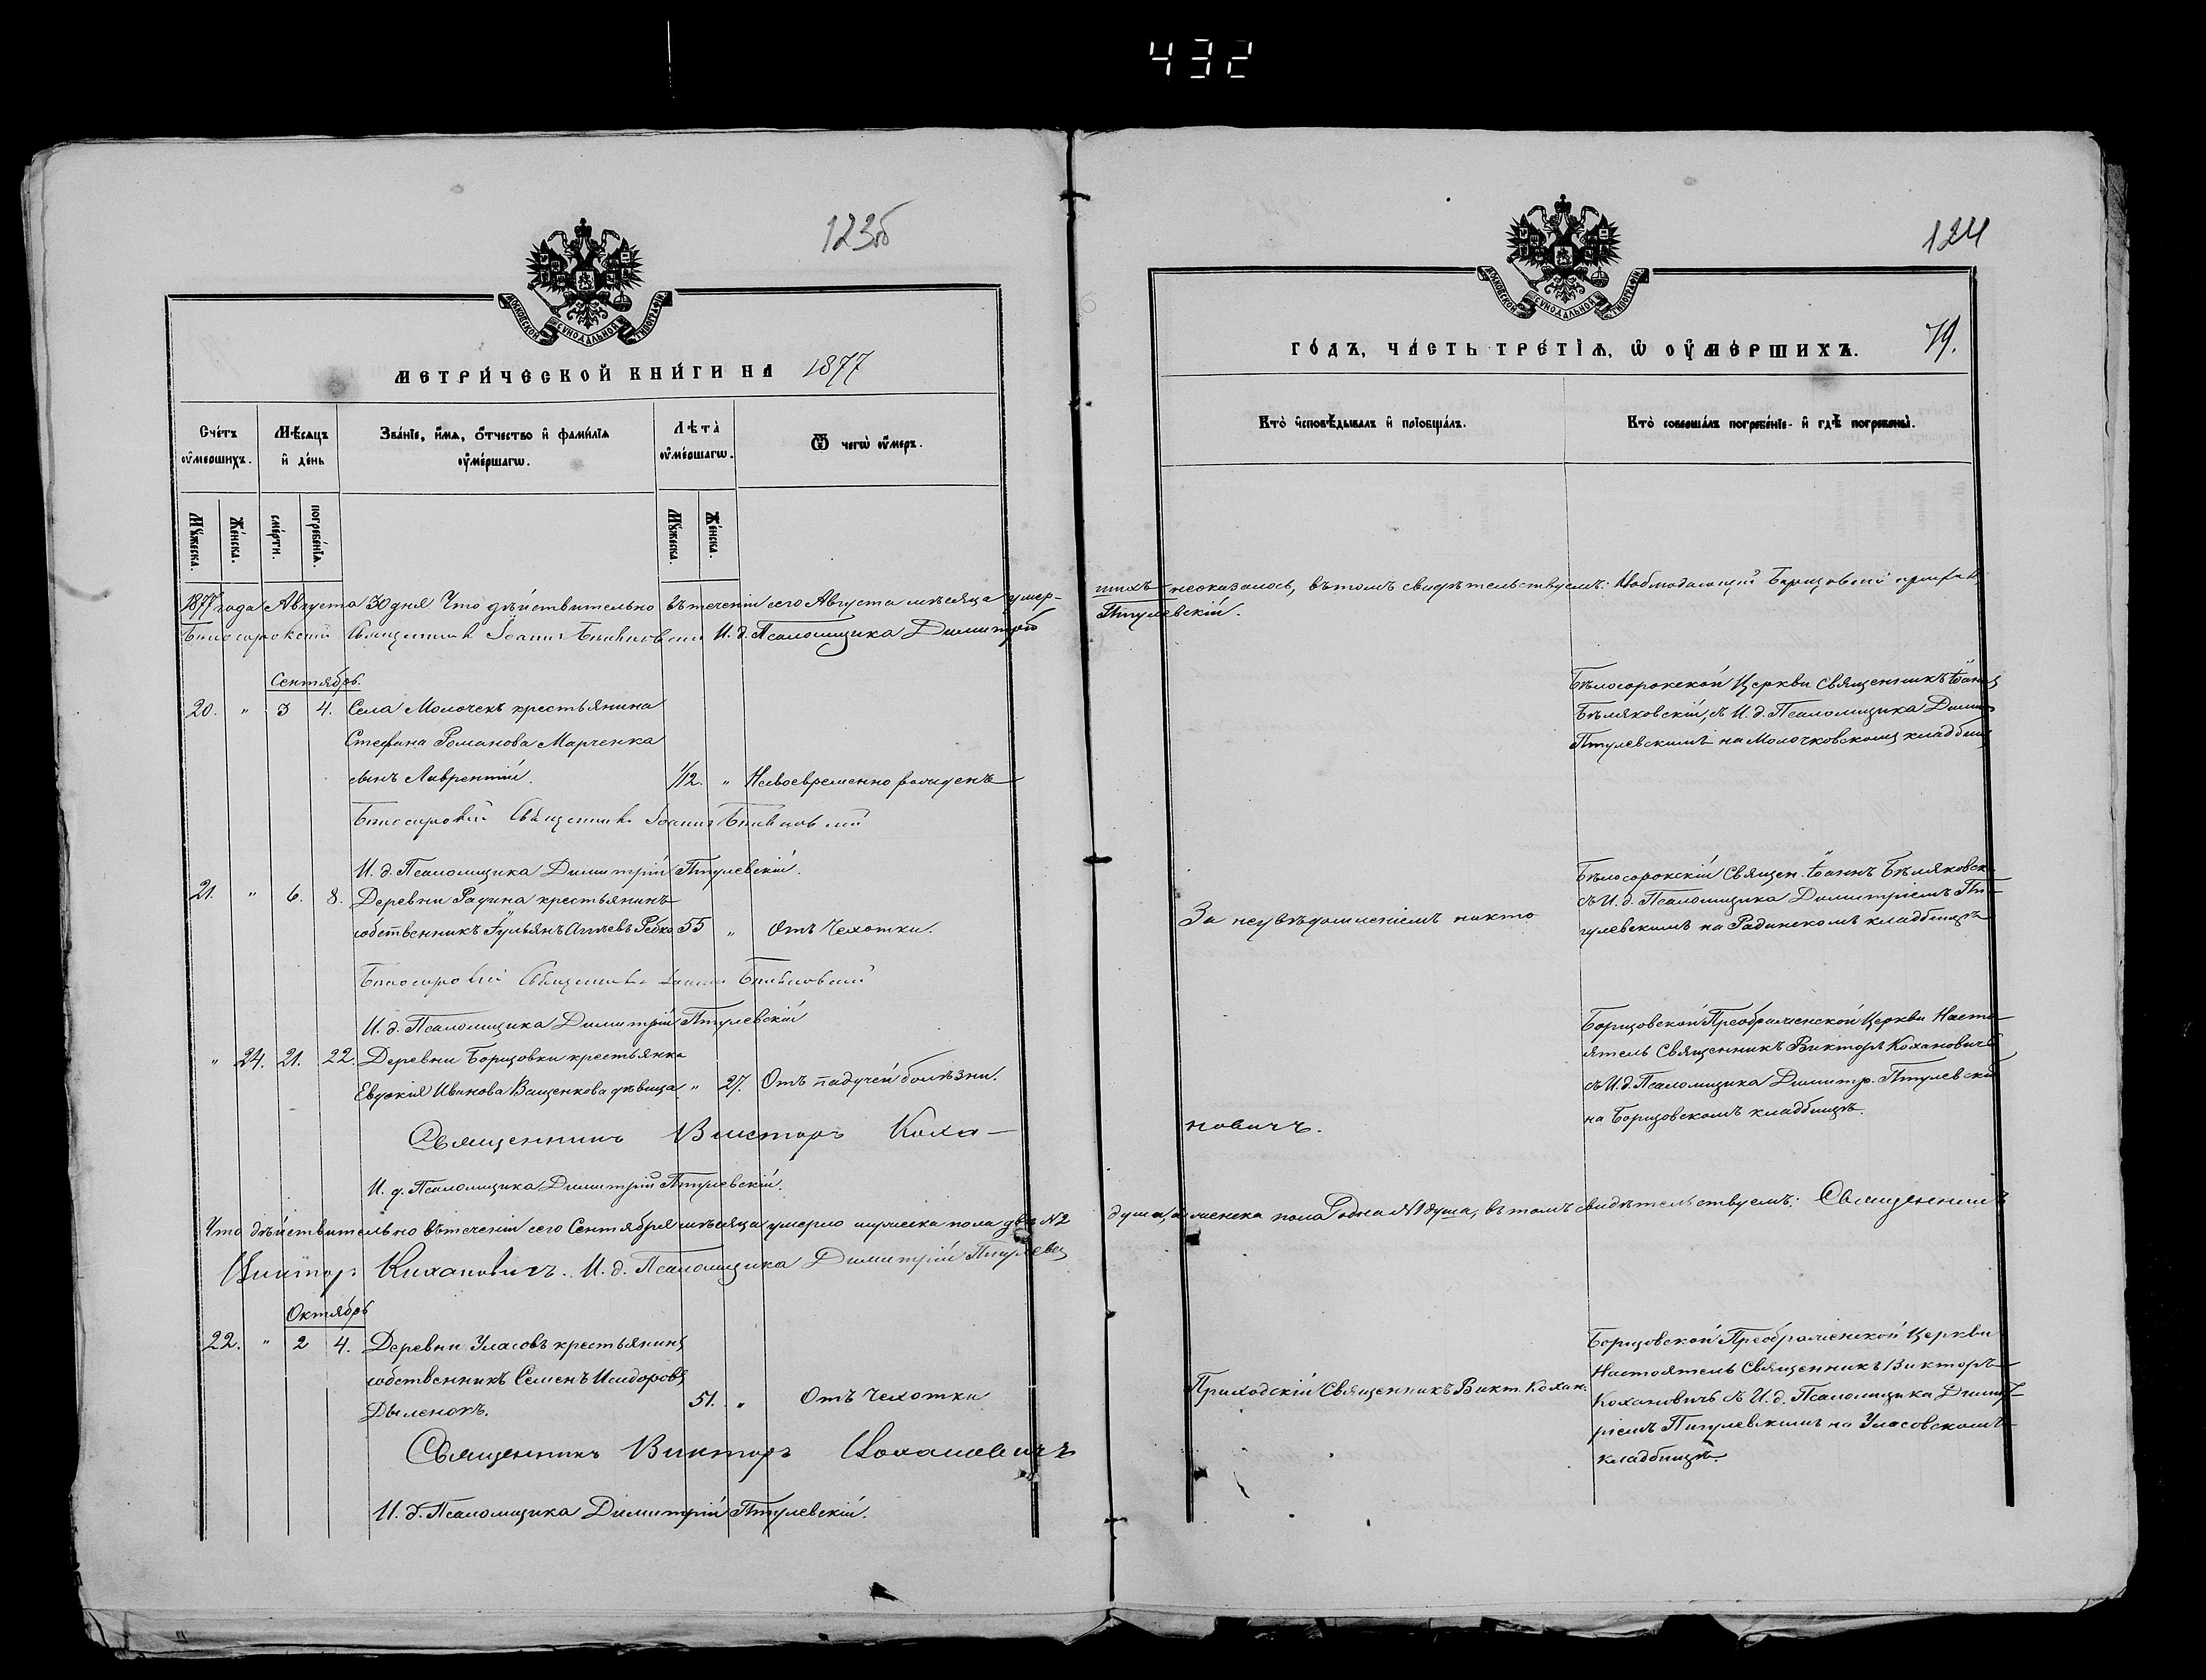 432
123б
МОСКОВСКОЙ СѴНОДАЛЬНОЙ ТИПОГРАФІИ
МЕТРИ́ЧЕСКОЙ КНИ́ГИ НА 1877
Сче́тъ ᲂу҆ме́ршихъ.
Мѣ́сѧцъ и҆ де́нь
Зва́нїе, и҆́мѧ, ѻ҆́тчество и҆ фами́лїѧ ᲂу҆ме́ршагѡ.
Лѣта̀ ᲂу҆ме́ршагѡ.
Ѿ чегѡ̀ ᲂу҆́меръ.
Мꙋ́жеска.
Же́нска.
сме́рти.
погребе́нїѧ.
Мꙋ́жеска.
Же́нска.
1877 года Августа 30 дня Что дѣйствительно въ теченіи сего Августа мѣсяца умер-
Бѣлосорокскій Священникъ Іоаннъ Бѣляковскій И. д. Псаломщика Димитрій
Сентябрь.
20. " 3 4. Села Молочекъ крестьянина
Стефана Романова Марченка
сынъ Лаврентій. 1/12. " Несвоевременно рожденъ
Священникъ Іоаннъ Бѣляковскій
И. д. Псаломщика Димитрій Птулевскій.
21. " 6. 8. Деревни Радина крестьянинъ
собственникъ 55 " Отъ Чехотки.
Священникъ Іоаннъ Бѣляковскій
И. д. Псаломщика Димитрій Птулевскій
" 24. 21. 22. Деревни Борщовки крестьянка
Евдокія Иванова Ващенкова дѣвица " 27. Отъ падучей болѣзни.
Священникъ Викторъ Коха-
И. д. Псаломщика Димитрій Птулевскій.
Что дѣйствительно въ теченіи сего Сентября мѣсяца умерло мужеска пола двѣ №2
Викторъ Кохановичъ. И. д. Псаломщика Димитрій
Октябрь
22. " 2 4. Деревни Уласовъ крестьянинъ
собственникъ Семенъ Исидоровъ
Дыленокъ. 51. " Отъ Чехотки
Священникъ Викторъ Кохановичъ
И. д. Псаломщика Димитрій Птулевскій.
124
МОСКОВСКОЙ СѴНОДАЛЬНОЙ ТИПОГРАФІИ
ГО́ДЪ, ЧА́СТЬ ТРЕ́ТЇѦ, Ѡ҆ ОУ҆МЕ́РШИХЪ. 79.
Кто̀ и҆сповѣ́дывалъ и҆ прїобща́лъ.
Кто̀ соверша́лъ погребе́нїе и҆ гдѣ̀ погребены̀.
шихъ неоказалось, въ томъ свидѣтельствуемъ: Наблюдающій Борщовскій приходъ
Птулевскій.
Бѣлосорокской Церкви Священникъ Іоаннъ
Бѣляковскій, съ И. д. Псаломщика Димит
Птулевскимъ на Молочковскомъ кладбищ
Бѣлосорокскій Священ. Іоаннъ Бѣляковск
За неувѣдомленіемъ никто
съ И. д. Псаломщика Димитріемъ Пт-
улевскимъ на Радинскомъ кладбищѣ
Борщовской Преображенской Церкви Насто-
ятель Священникъ Викторъ Кохановичъ
съ И. д. Псаломщика Димитр. Птулевскій
на Борщовскомъ кладбищѣ.
новичъ.
душа, а женска пола одна №1 душа, въ томъ свидѣтельствуемъ: Священникъ
Борщовской Преображенской Церкви
Настоятель Священникъ Викторъ
Приходскій Священникъ Викт. Кохан.
Кохановичъ съ И. д. Псаломщика Димит-
ріемъ Птулевскимъ на Уласовскомъ
кладбищѣ.